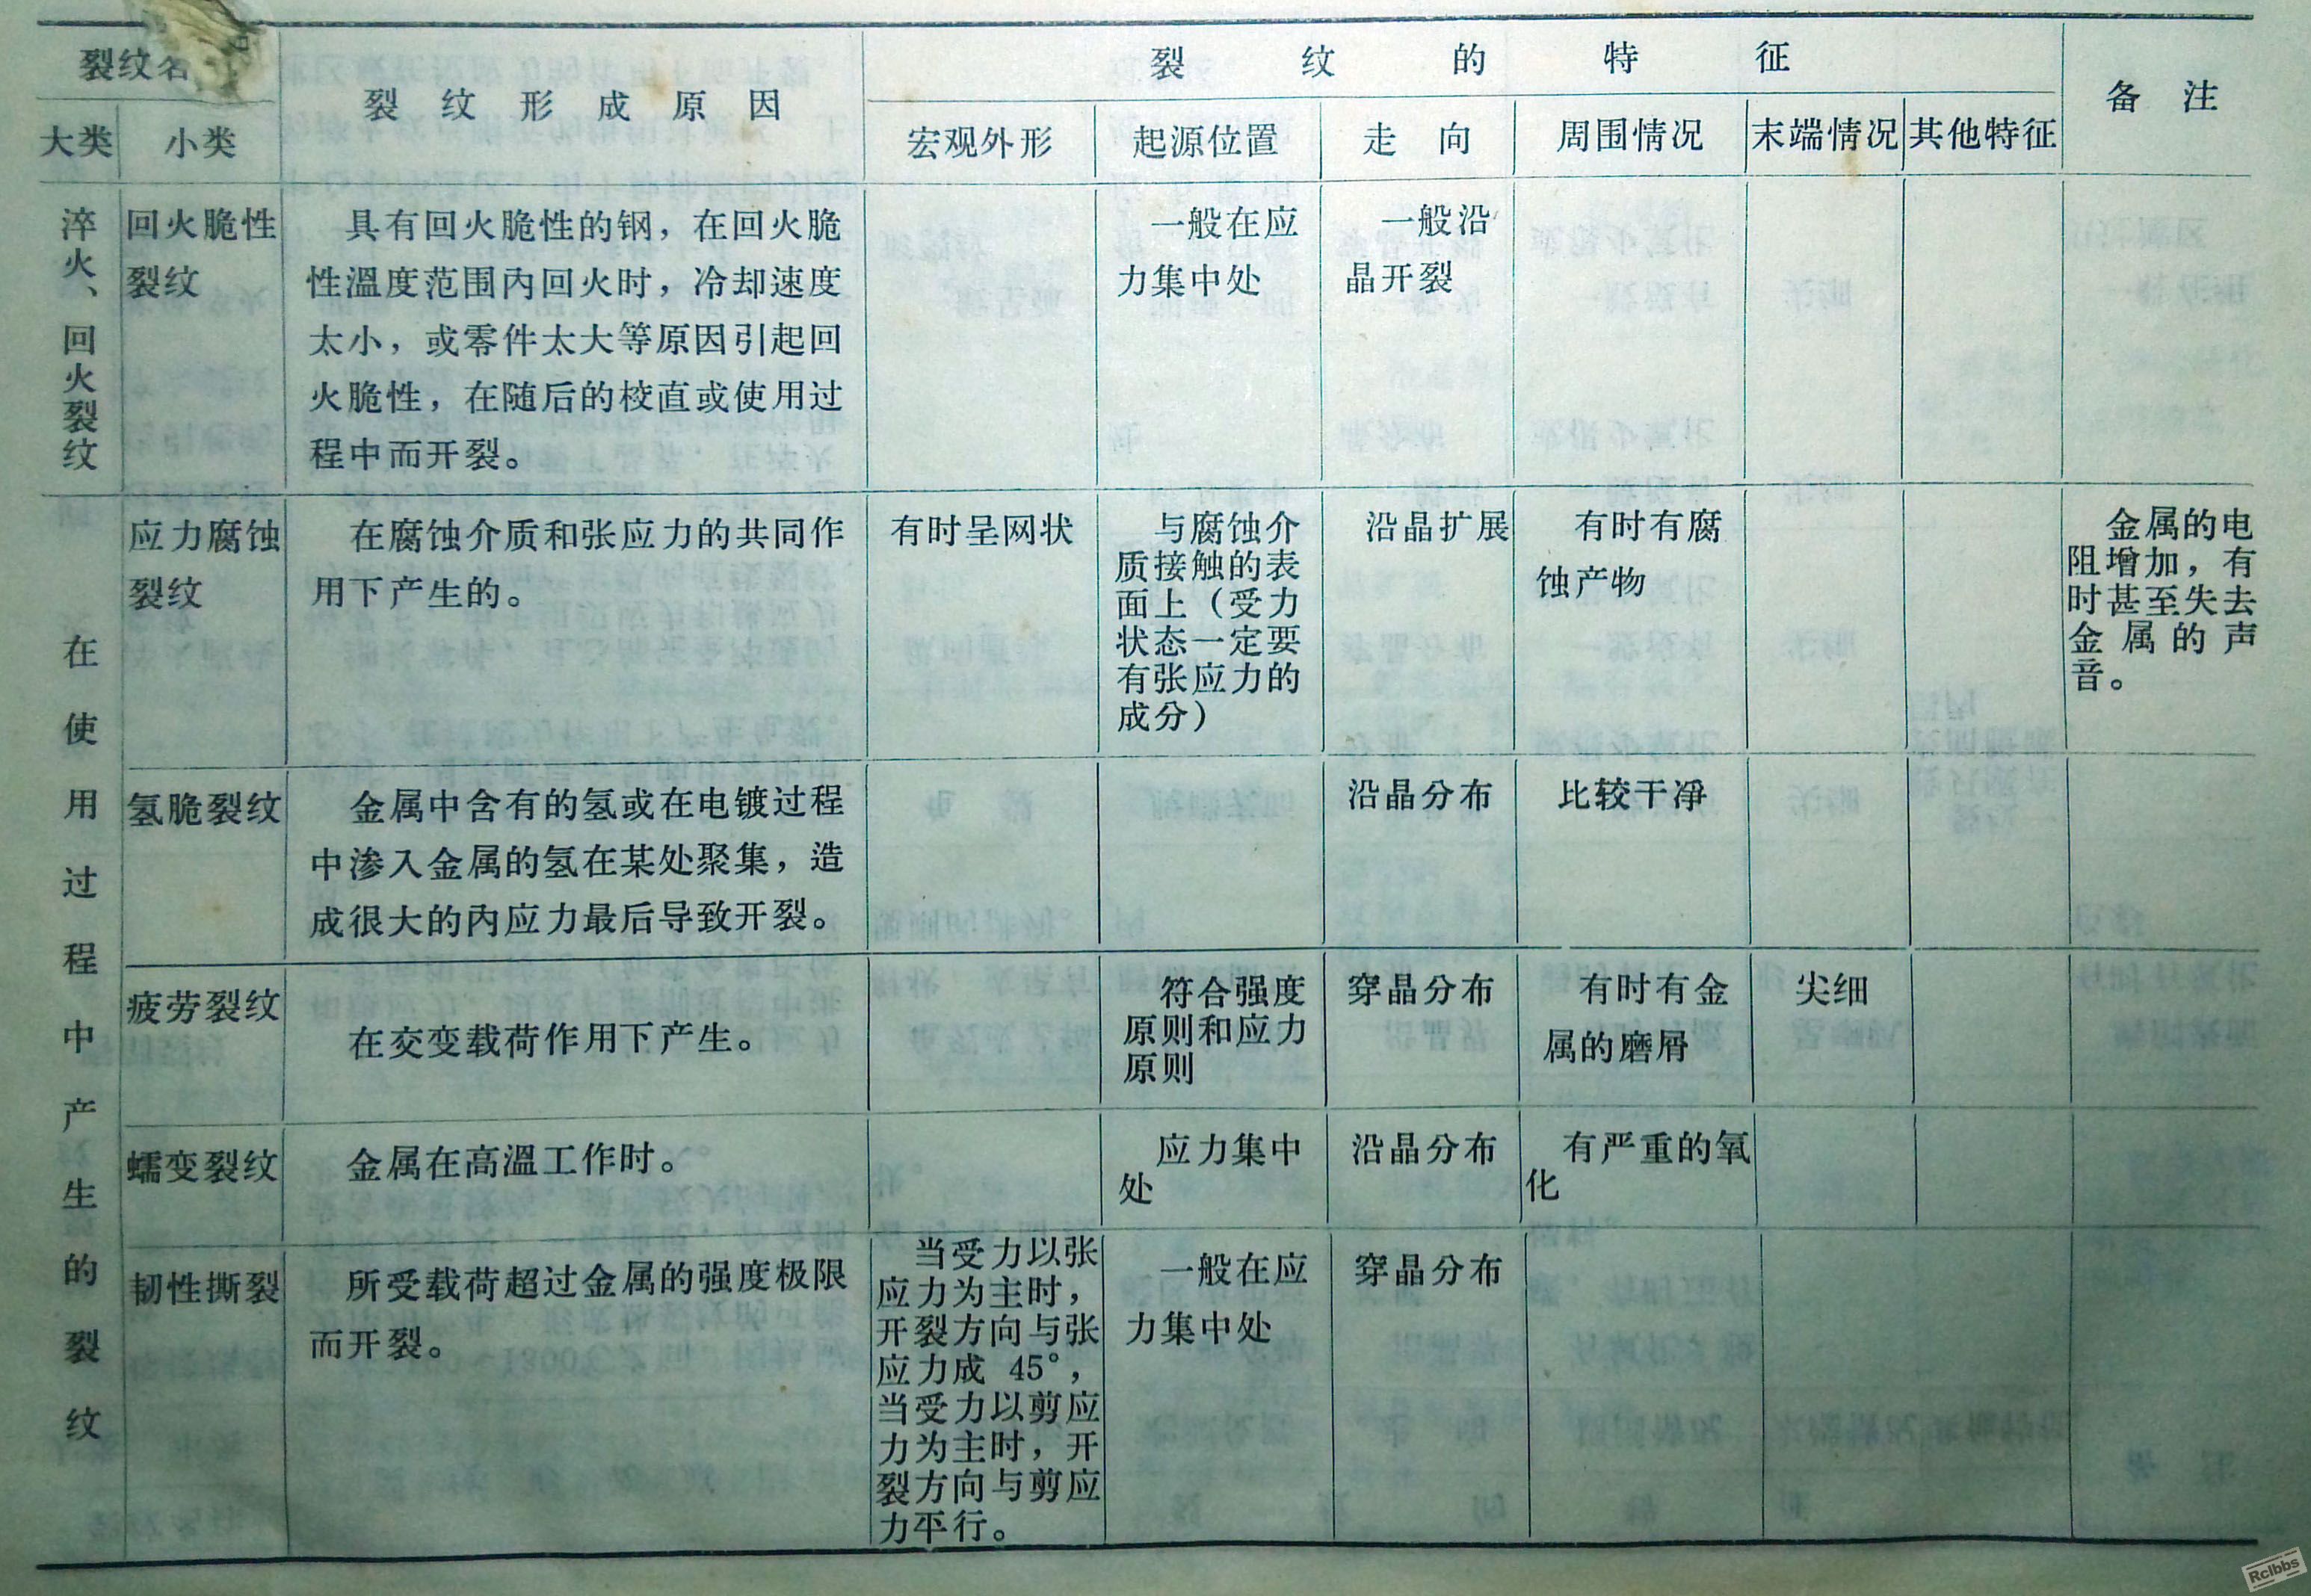 裂纹名
裂纹形成原因
裂纹的特征
备注
大类
小类
宏观外形
起源位置
走向
周围情况
末端情况
其他特征
淬火、回火裂纹
回火脆性
裂纹
具有回火脆性的钢，在回火脆
性温度范围内回火时，冷却速度
太小，或零件太大等原因引起回
火脆性，在随后的校直或使用过
程中而开裂。
一般在应
力集中处
一般沿
晶开裂
在使用过程中产生的裂纹
应力腐蚀
裂纹
在腐蚀介质和张应力的共同作
用下产生的。
有时呈网状
与腐蚀介
质接触的表
面上（受力
状态一定要
有张应力的
成分）
沿晶扩展
有时有腐
蚀产物
金属的电
阻增加，有
时甚至失去
金属的声
音。
氢脆裂纹
金属中含有的氢或在电镀过程
中渗入金属的氢在某处聚集，造
成很大的内应力最后导致开裂。
沿晶分布
比较干净
疲劳裂纹
在交变载荷作用下产生。
符合强度
原则和应力
原则
穿晶分布
有时有金
属的磨屑
尖细
蠕变裂纹
金属在高温工作时。
应力集中
处
沿晶分布
有严重的氧
化
韧性撕裂
所受载荷超过金属的强度极限
而开裂。
当受力以张
应力为主时，
开裂方向与张
应力成 45°，
当受力以剪应
力为主时，开
裂方向与剪应
力平行。
一般在应
力集中处
穿晶分布
Rclbbs